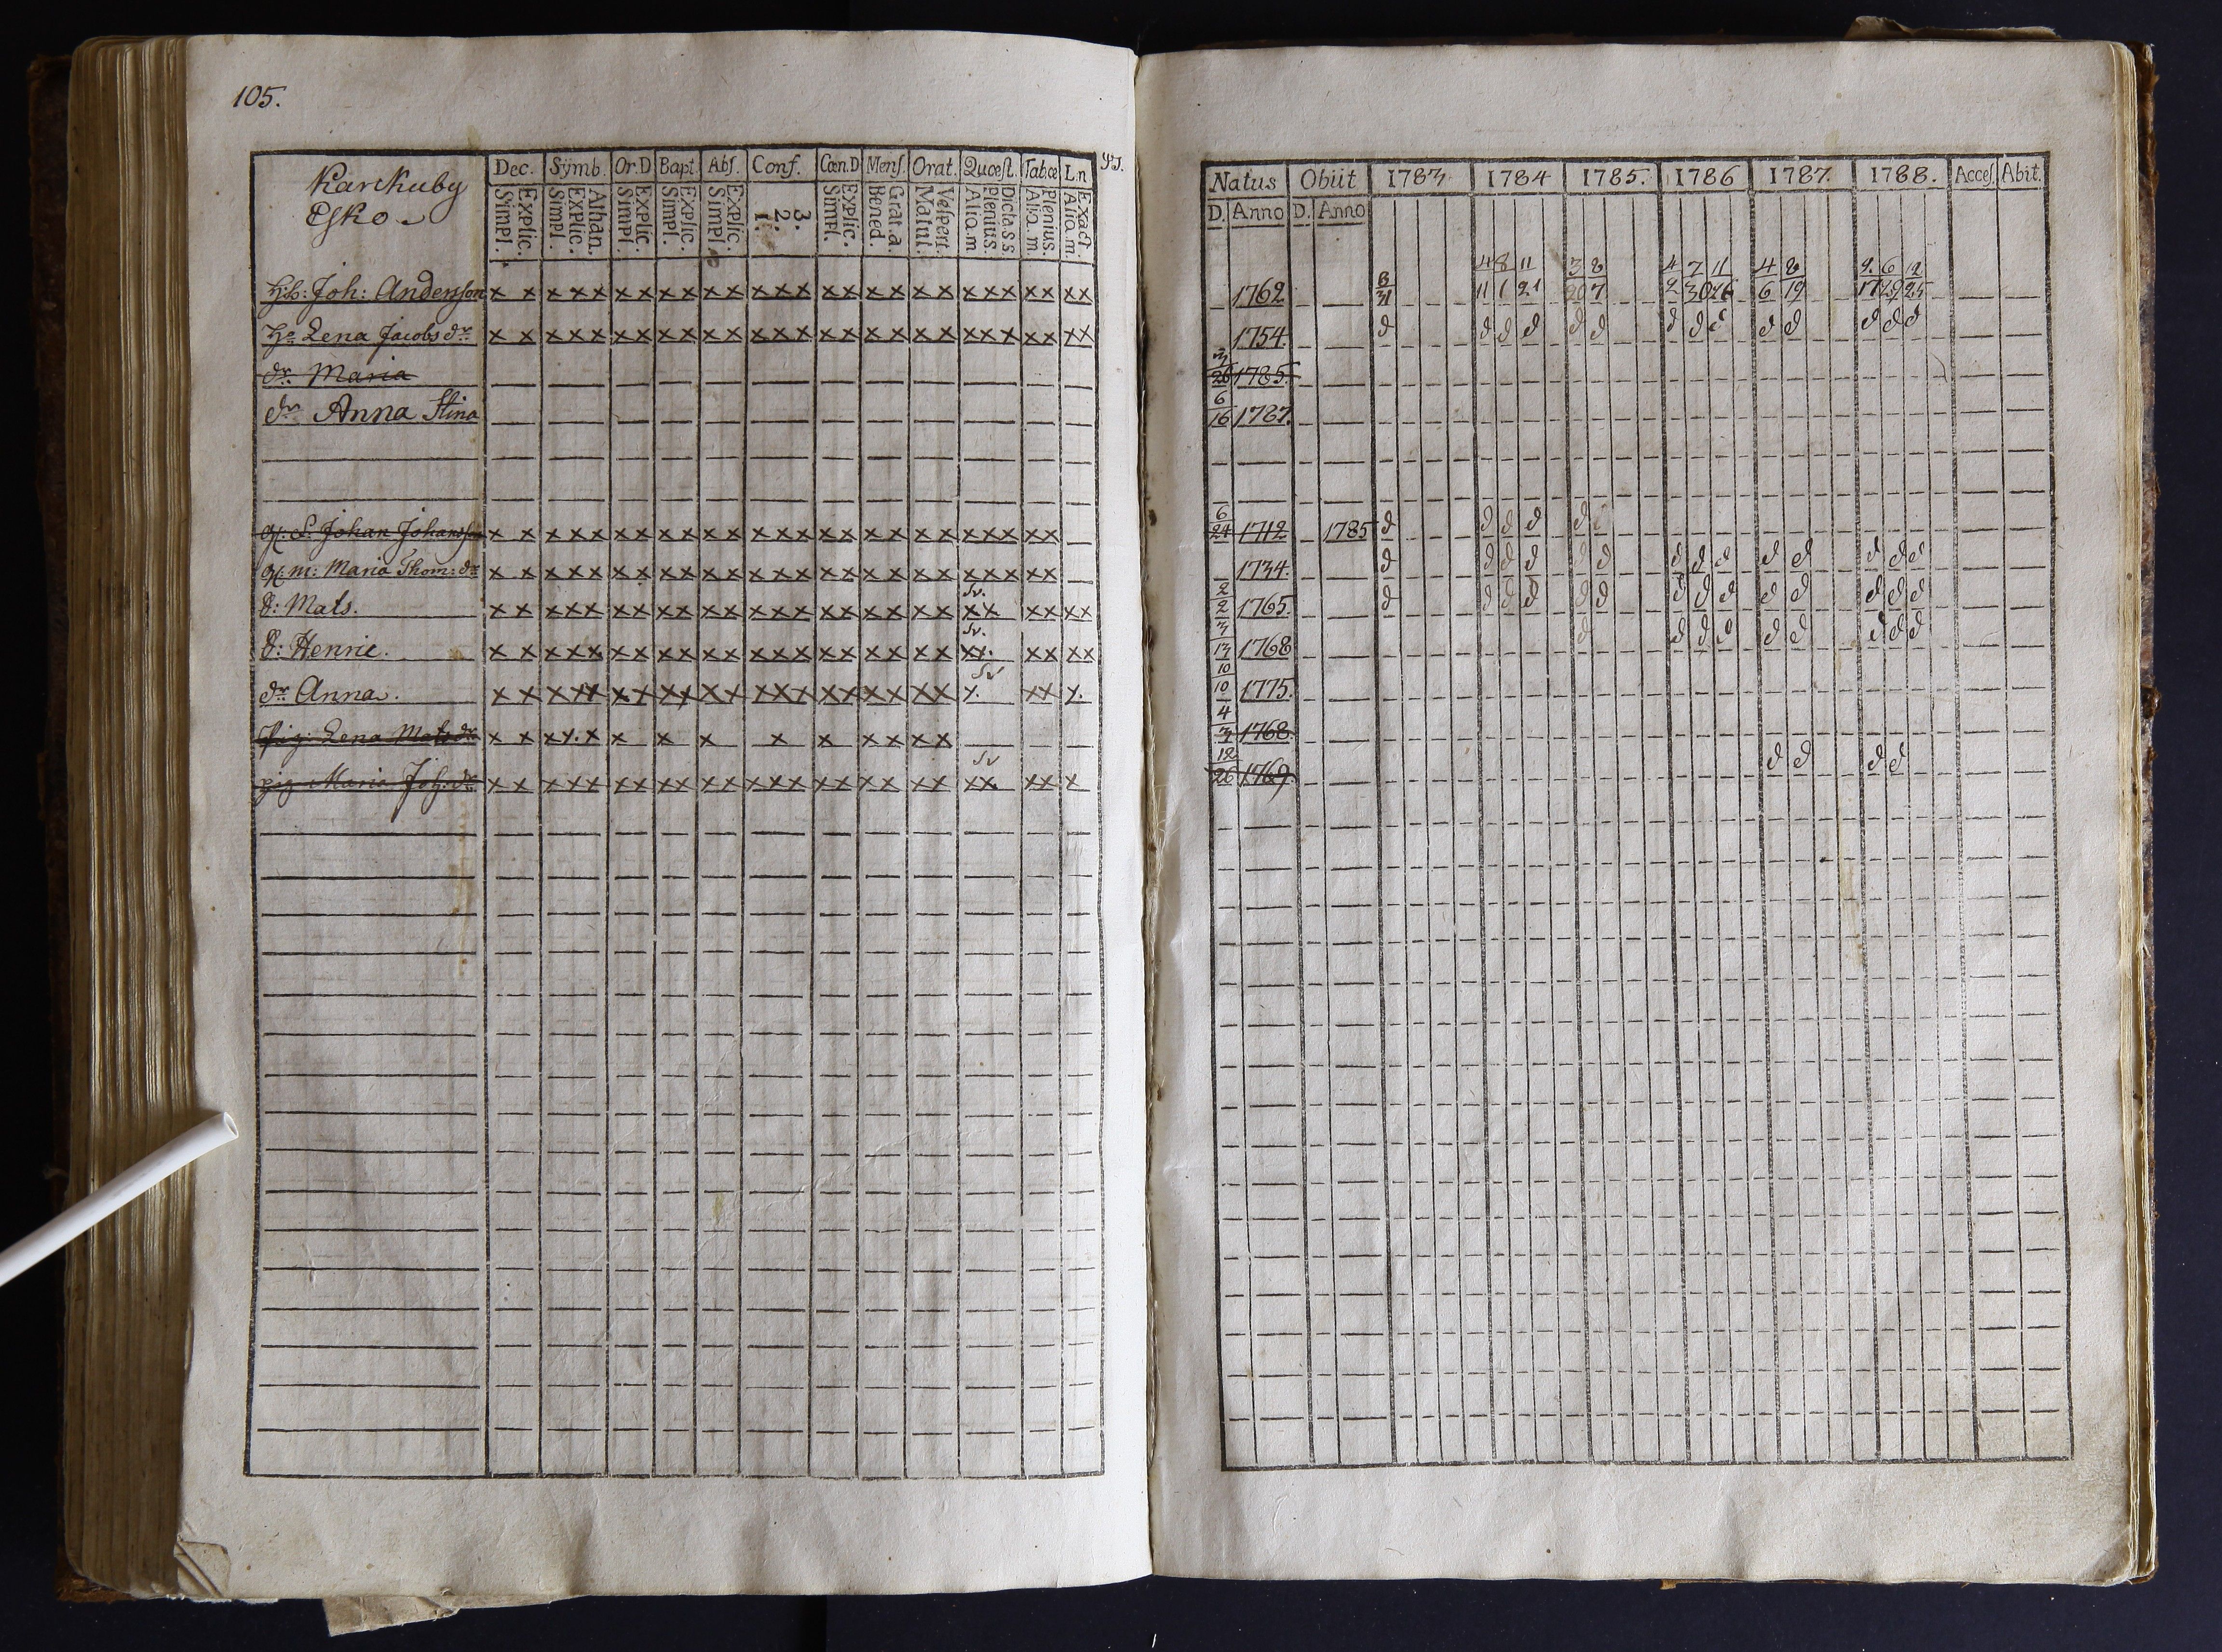 105.
Karckuby
Esko
Dec. Symb. Or.D Bapt. Abs. Conf. Cœn.D Mens. Orat. Quæst. Tab.œ L.n
Simpl. Explic. Simpl. Explic. Athan. Simpl. Explic. Simpl. Explic. Simpl. Explic. 1. 2. 3. Simpl. Explic. Bened. Grat.a. Matut. Vespert. Aliq.m Plenius. Dicta.s.s. Aliq.m. Plenius. Aliq.m. Exact.
Hb: Joh: Andersson x x x x x x x x x x x x x x x x x x x x x x x x x x x
Ha Lena Jacobs dr x x x x x x x x x x x x x x x x x x x x x x x x x x x
dr Maria
dr Anna Stina
Johan Johansson x x x x x x x x x x x x x x x x x x x x x x x x x
m: Maria Thom: dr x x x x x x x x x x x x x x x x x x x x x x x x x
Sv.
S: Mats. x x x x x x x x x x x x x x x x x x x x x x x x x x
Sv.
S: Henric. x x x x x x x x x x x x x x x x x x x x x x x x x x
Sv
dr Anna. x x x x x x x x x x x x x x x x x x x x x x x x x
Pig: Lena Mats dr x x x x x x x x x x x x x x
Sv
pig Maria Joh: dr x x x x x x x x x x x x x x x x x x x x x x x x x
Natus Obiit 1783 1784 1785. 1786 1787. 1788. Acces. Abit.
D. Anno D. Anno
4 8 11 3 8 4 7 11 4 8 2. 6 12
1762 8 31 11 1 21 20 7 2 30 26 6 19 17 29 25
1754. d d d d d d d d d d d d d d
3
26 1785.
6
16 1787.
6
24 1712 1785 d d d d d
1734. d d d d d d d d d d d d d d
2
2 1765. d d d d d d d d d d d d d d
3
13 1768 d d d d d d d d d
10
10 1775.
4
3 1768.
12
26 1769. d d d d